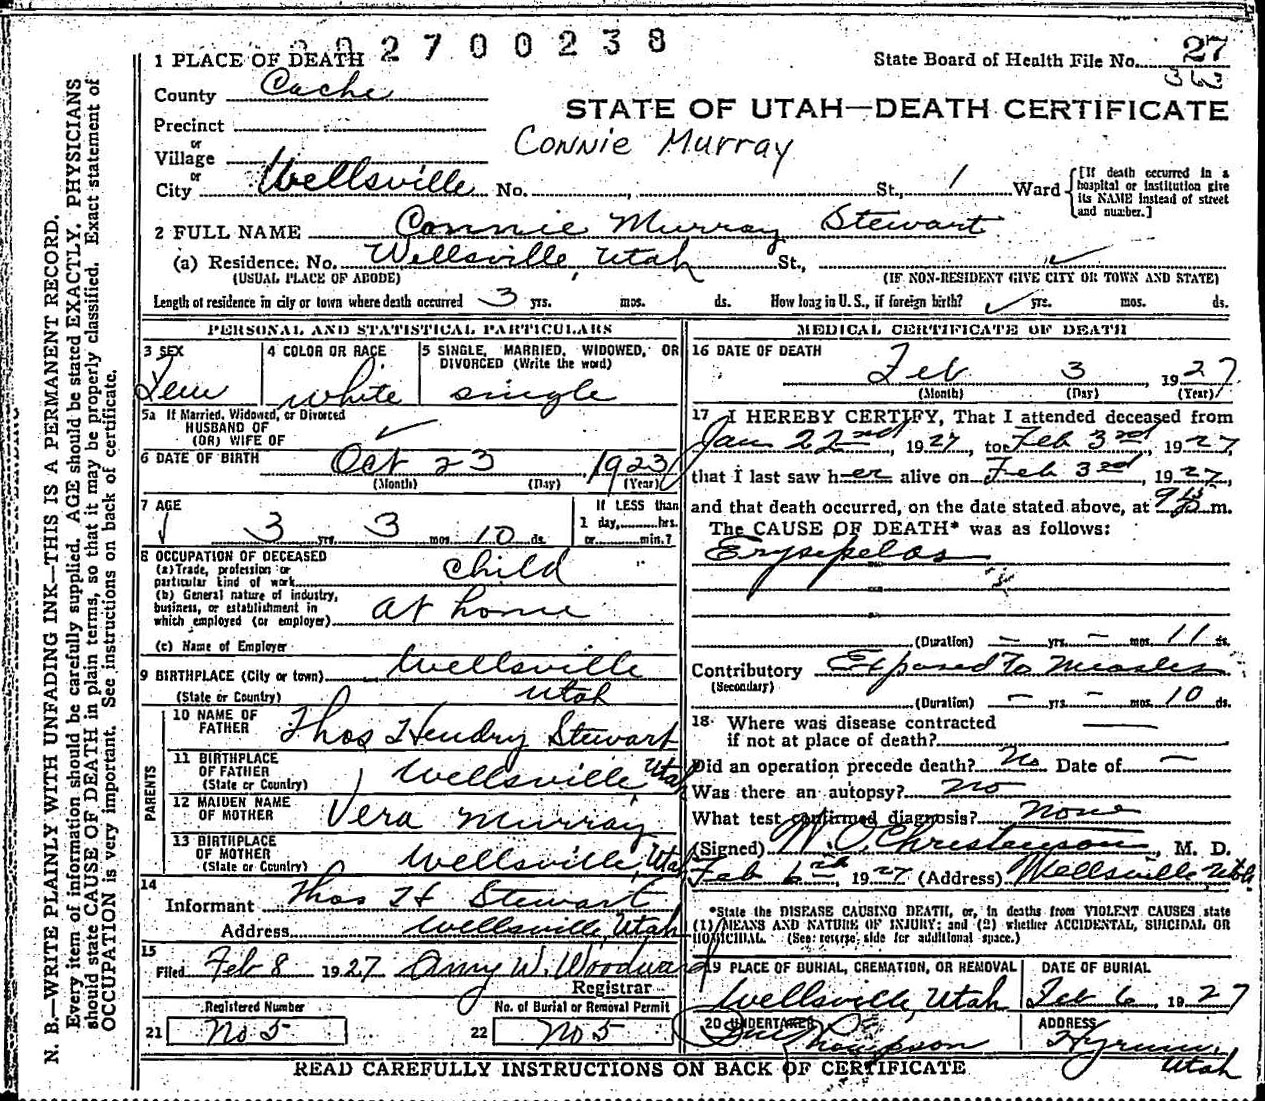 2700238
1 PLACE OF DEATH
State Board of Health File No. 27
County Cache
363
STATE OF UTAH—DEATH CERTIFICATE
Precinct
or
Connie Murray
Village
or
City Wellsville No. , St., 1 Ward
[If death occurred in a
hospital or institution give
its NAME instead of street
and number.]
2 FULL NAME Connie Murray Stewart
(a) Residence. No. Wellsville, Utah St.,
(USUAL PLACE OF ABODE) (IF NON-RESIDENT GIVE CITY OR TOWN AND STATE)
Length of residence in city or town where death occurred 3 yrs. mos. ds. How long in U. S., if foreign birth? yrs. mos. ds.
PERSONAL AND STATISTICAL PARTICULARS
3 SEX
Fem
4 COLOR OR RACE
white
5 SINGLE, MARRIED, WIDOWED, OR
DIVORCED (Write the word)
single
5a If Married, Widowed, or Divorced
HUSBAND OF
(OR) WIFE OF
6 DATE OF BIRTH Oct 23, 1923
(Month) (Day) (Year)
7 AGE
3 yrs. 3 mos. 10 ds.
If LESS than
1 day, hrs.
or min.?
8 OCCUPATION OF DECEASED
(a) Trade, profession or
particular kind of work child
(b) General nature of industry,
business, or establishment in
which employed (or employer) at home
(c) Name of Employer
9 BIRTHPLACE (City or town) Wellsville
(State or Country) Utah
PARENTS
10 NAME OF
FATHER Thos Hendry Stewart
11 BIRTHPLACE
OF FATHER
(State or Country) Wellsville, Utah
12 MAIDEN NAME
OF MOTHER Vera Murray
13 BIRTHPLACE
OF MOTHER
(State or Country) Wellsville, Utah
14
Informant Thos H Stewart
Address Wellsville, Utah
15
Filed Feb 8 1927 Amy W. Woodward
Registrar
Registered Number
21 No 5
No. of Burial or Removal Permit
22 No 5
MEDICAL CERTIFICATE OF DEATH
16 DATE OF DEATH
Feb 3, 1927
(Month) (Day) (Year)
17 I HEREBY CERTIFY, That I attended deceased from
Jan 22nd, 1927, to Feb 3rd, 1927,
that I last saw her alive on Feb 3rd, 1927,
and that death occurred, on the date stated above, at m.
The CAUSE OF DEATH* was as follows:
Erysipelas
(Duration) — yrs. — mos. 11 ds.
Contributory Exposed to Measles
(Secondary)
(Duration) — yrs. — mos. 10 ds.
18 Where was disease contracted
if not at place of death?
Did an operation precede death? No Date of —
Was there an autopsy? no
What test confirmed diagnosis? none
(Signed) W. O. Christenson, M. D.
Feb 6th, 1927 (Address) Wellsville, Utah
*State the DISEASE CAUSING DEATH, or, in deaths from VIOLENT CAUSES state
(1) MEANS AND NATURE OF INJURY; and (2) whether ACCIDENTAL, SUICIDAL OR
HOMICIDAL. (See reverse side for additional space.)
19 PLACE OF BURIAL, CREMATION, OR REMOVAL
Wellsville, Utah
DATE OF BURIAL
Feb 6, 1927
20 UNDERTAKER
Thompson
ADDRESS
Hyrum,
Utah
READ CAREFULLY INSTRUCTIONS ON BACK OF CERTIFICATE
N. B.—WRITE PLAINLY WITH UNFADING INK—THIS IS A PERMANENT RECORD.
Every item of information should be carefully supplied. AGE should be stated EXACTLY. PHYSICIANS
should state CAUSE OF DEATH in plain terms, so that it may be properly classified. Exact statement of
OCCUPATION is very important. See instructions on back of certificate.